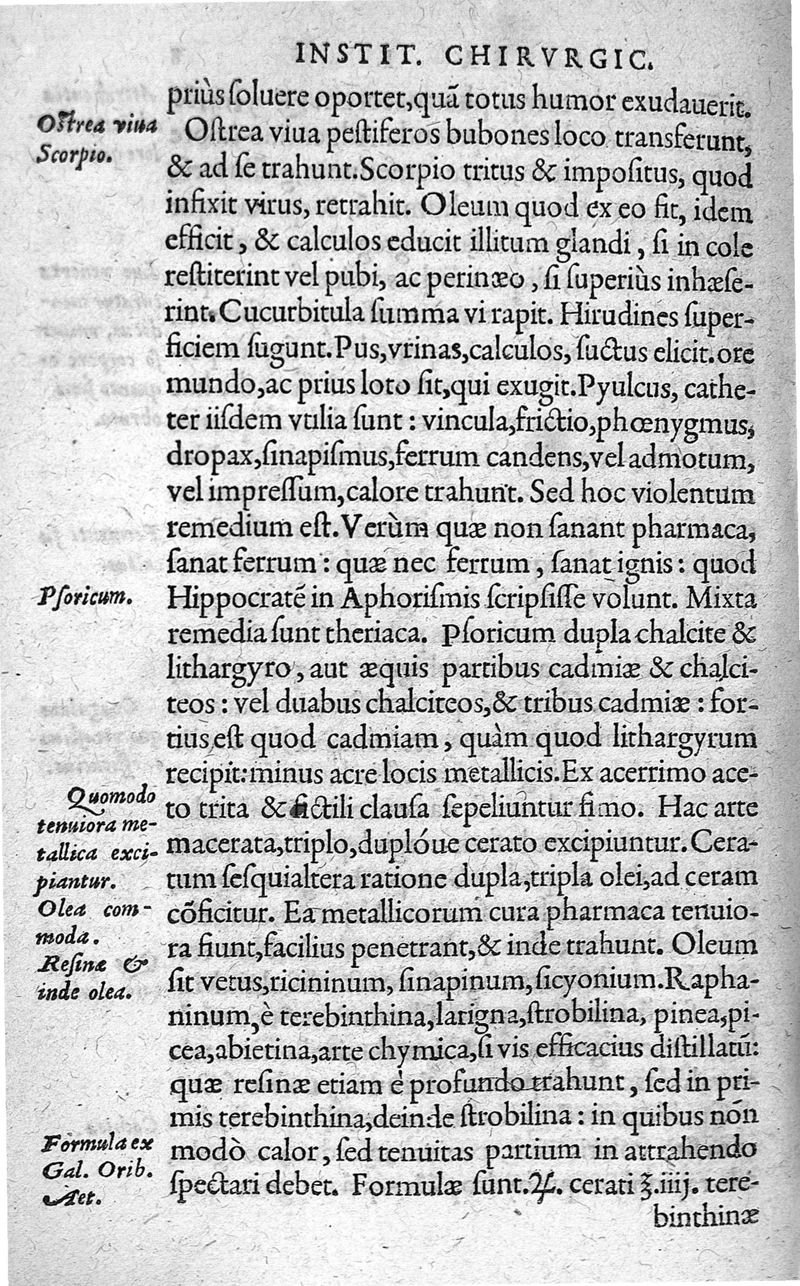 INSTIT. CHIRVRGIC.
priùs ſoluere oportet, quā totus humor exudauerit.
Oſtrea viua
Scorpio.
Oſtrea viua peſtiferos bubones loco transferunt,
& ad ſe trahunt. Scorpio tritus & impoſitus, quod
infixit virus, retrahit. Oleum quod ex eo fit, idem
efficit, & calculos educit illitum glandi, ſi in cole
reſtiterint vel pubi, ac perinæo, ſi ſuperiùs inhæſe-
rint. Cucurbitula ſumma vi rapit. Hirudines ſuper-
ficiem ſugunt. Pus, vrinas, calculos, ſuctus elicit. ore
mundo, ac prius loto ſit, qui exugit. Pyulcus, cathe-
ter iiſdem vtilia ſunt: vincula, frictio, phœnygmus,
dropax, ſinapiſmus, ferrum candens, vel admotum,
vel impreſſum, calore trahunt. Sed hoc violentum
remedium eſt. Verùm quæ non ſanant pharmaca,
ſanat ferrum: quæ nec ferrum, ſanat ignis: quod
Pſoricum.
Hippocratē in Aphoriſmis ſcripſiſſe volunt. Mixta
remedia ſunt theriaca. Pſoricum dupla chalcite &
lithargyro, aut æquis partibus cadmiæ & chalci-
teos: vel duabus chalciteos, & tribus cadmiæ: for-
tius eſt quod cadmiam, quàm quod lithargyrum
recipit: minus acre locis metallicis. Ex acerrimo ace-
Quomodo
tenuiora me-
tallica exci-
piantur.
to trita & fictili clauſa ſepeliuntur fimo. Hac arte
macerata, triplo, duplóue cerato excipiuntur. Cera-
tum ſeſquialtera ratione dupla, tripla olei, ad ceram
Olea com-
moda.
Reſinæ &
inde olea.
cōficitur. Ea metallicorum cura pharmaca tenuio-
ra fiunt, facilius penetrant, & inde trahunt. Oleum
ſit vetus, ricininum, ſinapinum, ſicyonium. Rapha-
ninum, è terebinthina, larigna, ſtrobilina, pinea, pi-
cea, abietina, arte chymica, ſi vis efficacius diſtillatū:
quæ reſinæ etiam è profundo trahunt, ſed in pri-
mis terebinthina, deinde ſtrobilina: in quibus non
Formula ex
Gal. Orib.
Aet.
modò calor, ſed tenuitas partium in attrahendo
ſpectari debet. Formulæ ſunt. ℞. cerati ℥.iiij. tere-
binthinæ